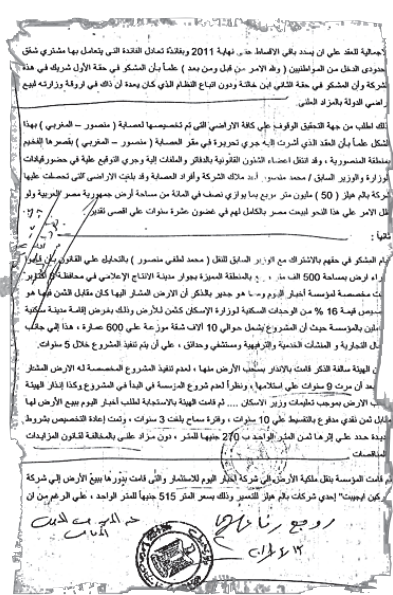 لاجمالية للعقد على ان يسدد باقى الاقساط حتى نهاية 2011 وبفائدة تعادل الفائدة التى يتعامل بها مشترى شقق
حدودى الدخل من المواطنيين ( ولله الامر من قبل ومن بعد ) علماً بأن المشكو في حقة الأول شريك في هذة
شركة وأن المشكو في حقة الثانى ابن خالتة ودون اتباع النظام الذي كان يعدة أن ذاك في اروقة وزارته لبيع
راضي الدولة بالمزاد العلنى.
ذلك اطلب من جهة التحقيق الوقوف على كافة الاراضي التى تم تخصيصها لعصابة ( منصور – المغربي ) بهذا
شكل علماً بأن العقد الذي أشرت اليه جرى تحريرة في مقر العصابة ( منصور – المغربي ) بقصرها الفخيم
بمنطقة المنصورية ، وقد انتقل اعضاء الشئون القانونية بالدفاتر والملفات إلية وجرى التوقيع علية في حضور قيادات
لوزارة والوزير السابق / محمد منصور أحد ملاك الشركة وأفراد العصابة وقد بلغت الاراضي التى تحصلت عليها
شركة بالم هيلز ( 50 ) مليون متر مربع بما يوازى نصف في المائة من مساحة أرض جمهورية مصر العربية ولو
ظل الامر على هذا النحو لبيعت مصر بالكامل لهم في غضون عشرة سنوات على اقصى تقدير
ثانياً :
ام المشكو في حقهم بالاشتراك مع الوزير السابق للنقل ( محمد لطفي منصور ) بالتحايل على القانون بأن قاموا
راء ارض بمساحة 500 الف متر بالمنطقة المميزة بجوار مدينة الانتاج الإعلامي في محافظة 6 أكتوبر
ت مخصصة لمؤسسة أخبار اليوم ومما هو جدير بالذكر أن الارض المشار اليها كان مقابل الثمن فيها هو
صيص قيمة 16 % من الوحدات السكنية لوزارة الإسكان كثمن للأرض وذلك بغرض إقامة مدينة سكنية
املين بالمؤسسة حيث أن المشروع يشمل حوالى 10 ألاف شقة موزعة على 600 عمارة ، هذا إلي جانب
ال التجارية و المنشأت الخدمية والترفيهية ومستشفي وحدائق ، على أن يتم تنفيذ المشروع خلال 5 سنوات.
ن الهيئة سالفة الذكر قامت بالانذار بسحب الأرض منها ، لعدم تنفيذ المشروع المخصصة له الارض المشار
بعد أن مرت 9 سنوات على استلامها ، ونظراً لعدم شروع المؤسسة في البدأ في المشروع وكذا إنذار الهيئة
حب الارض بموجب تعليمات وزير الاسكان .... ثم قامت الهيئة بالاستجابة لطلب أخبار اليوم ببيع الأرض لها
ابل ثمن نقدي مدفوع بالتقسيط على 10 سنوات ، وفترة سماح بلغت 3 سنوات ، وتمت إعادة التخصيص بشروط
ديدة حدد على إثرها ثمن المتر الواحد بـ 270 جنيها للمتر ، دون مزاد علنى بالمخالفة لقانون المزايدات
المناقصات
م قامت المؤسسة بنقل ملكية الأرض إلي شركة أخبار اليوم للاستثمار والتى قامت بدورها ببيع الأرض إلي شركة
ركين ايجيبت" إحدي شركات بالم هيلز للتعمير وذلك بسعر المتر 515 جنيهاً للمتر الواحد ، على الرغم من ان